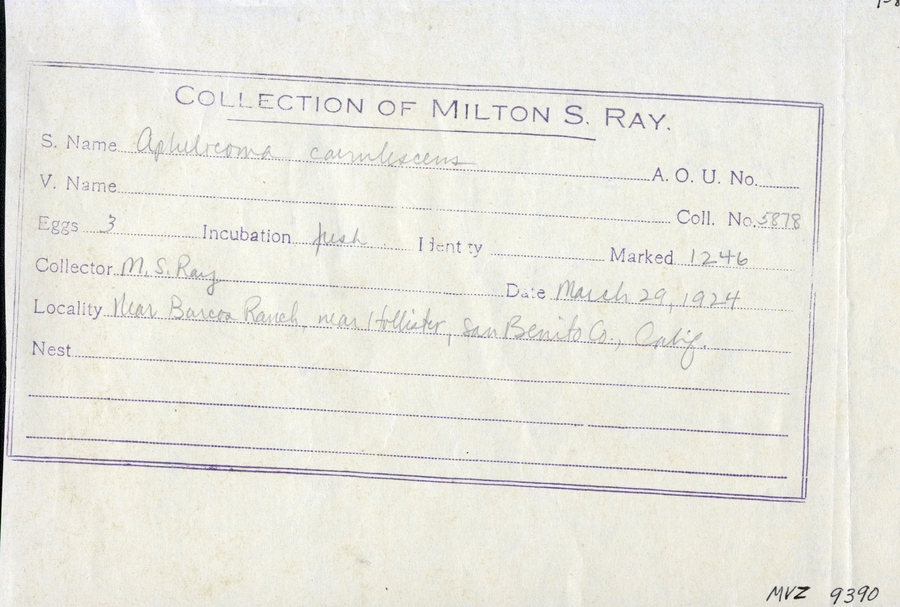 COLLECTION OF MILTON S. RAY.
S. Name Aphelocoma coerulescens A. O. U. No.
V. Name Coll. No. 5878
Eggs 3 Incubation fresh Identity Marked 1246
Collector M. S. Ray Date March 29, 1924
Locality Near Ranch, near Hollister, San Benito Co., Calif.
Nest
MVZ 9390